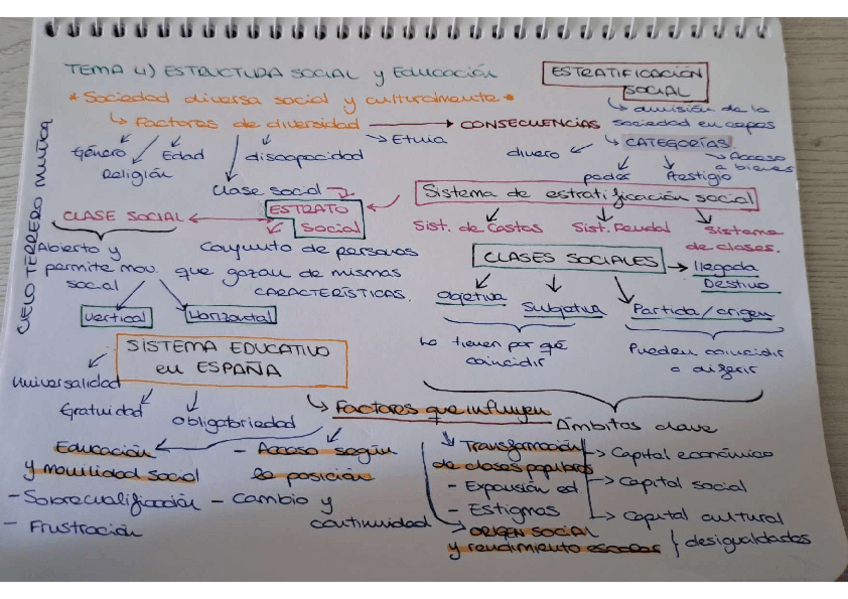 TEMA 4) ESTRUCTURA SOCIAL y EDUCACIÓN
ESTRATIFICACIÓN
SOCIAL
* Sociedad diversa social y culturalmente *
↳ división de la
sociedad en capas
↳ Factores de diversidad → CONSECUENCIAS
↳ CATEGORÍAS
Género
Religión
Edad
discapacidad
Etnia
Clase social
dinero
poder
Prestigio
Acceso
a bienes
CIELO TERRERO
Sistema de estratificación social
Sist. de Castas
Sist. Feudal
Sistema
de clases.
ESTRATO
Social
CLASE SOCIAL
Abierto y
permite mov.
social
Vertical
Horizontal
Conjunto de personas
que gozan de mismas
CARACTERÍSTICAS.
CLASES SOCIALES → llegada
Destino
Objetiva
Subjetiva
Partida/origen
tienen por qué
coincidir
Pueden coincidir
o diferir
SISTEMA EDUCATIVO
en ESPAÑA
Universalidad
Gratuidad
Obligatoriedad
↳ Factores que influyen
Educación
y movilidad social
- Sobrecualificación
- Frustración
- Acceso según
la posición
- Cambio y
continuidad
↳ Transformación
de clases populares
- Expansión ed
- Estigmas
→ ORIGEN SOCIAL
y rendimiento escolar } desigualdades
Ámbitos clave
→ Capital económico
→ Capital social
→ Capital cultural